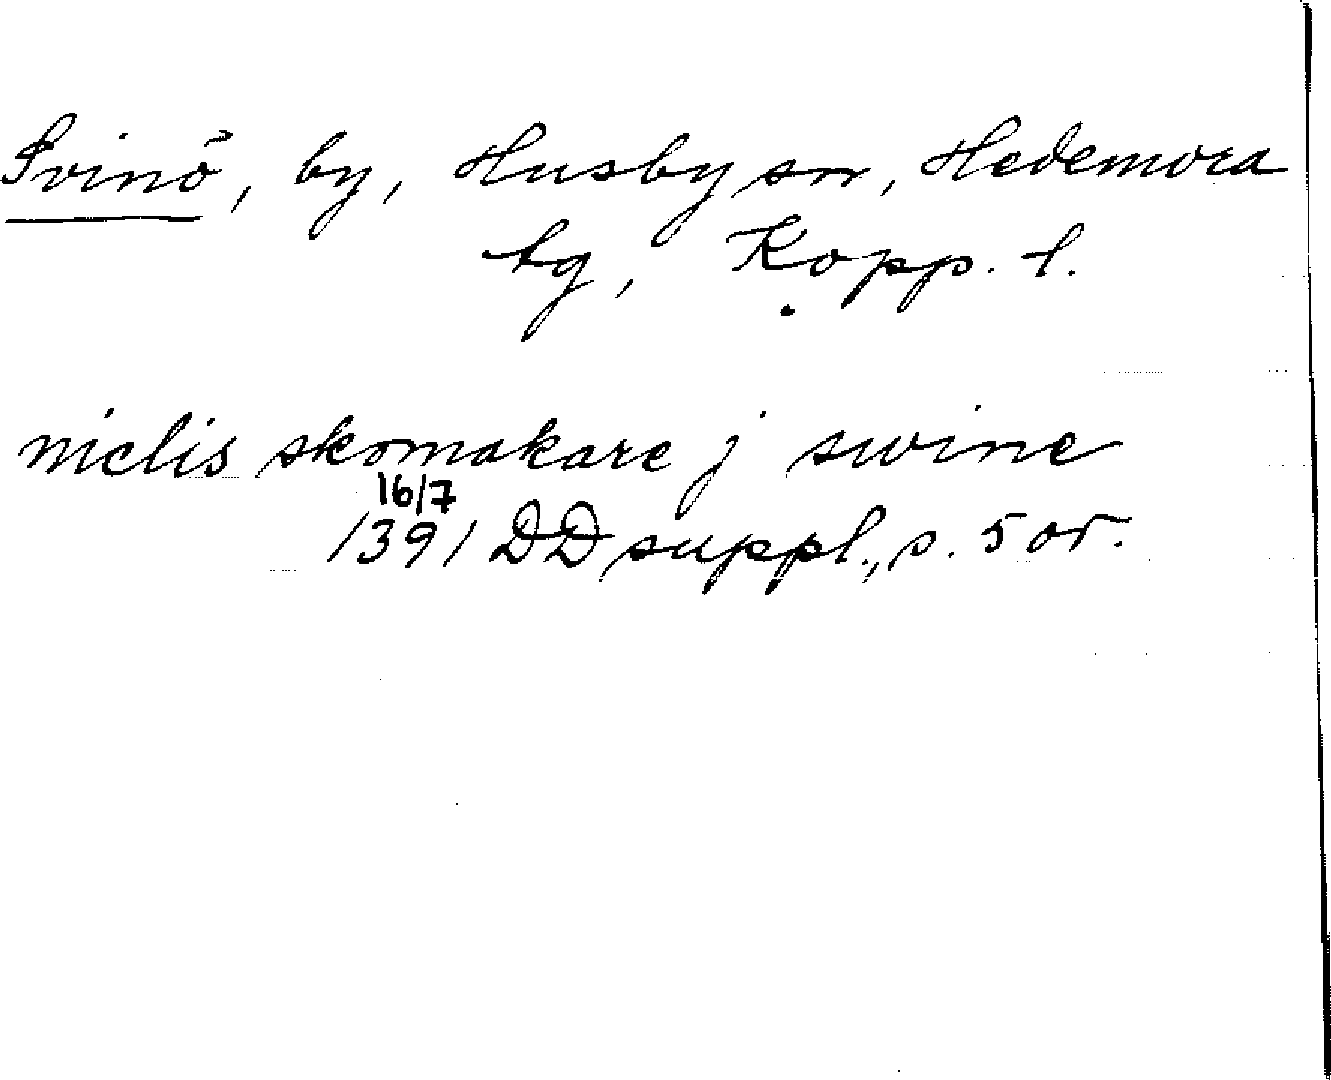 Svinö, by, Husby sn, Hedemora
tg, Kopp. l.
nielis skomakare j swine
16/7
1391 DD suppl., s. 5 or.